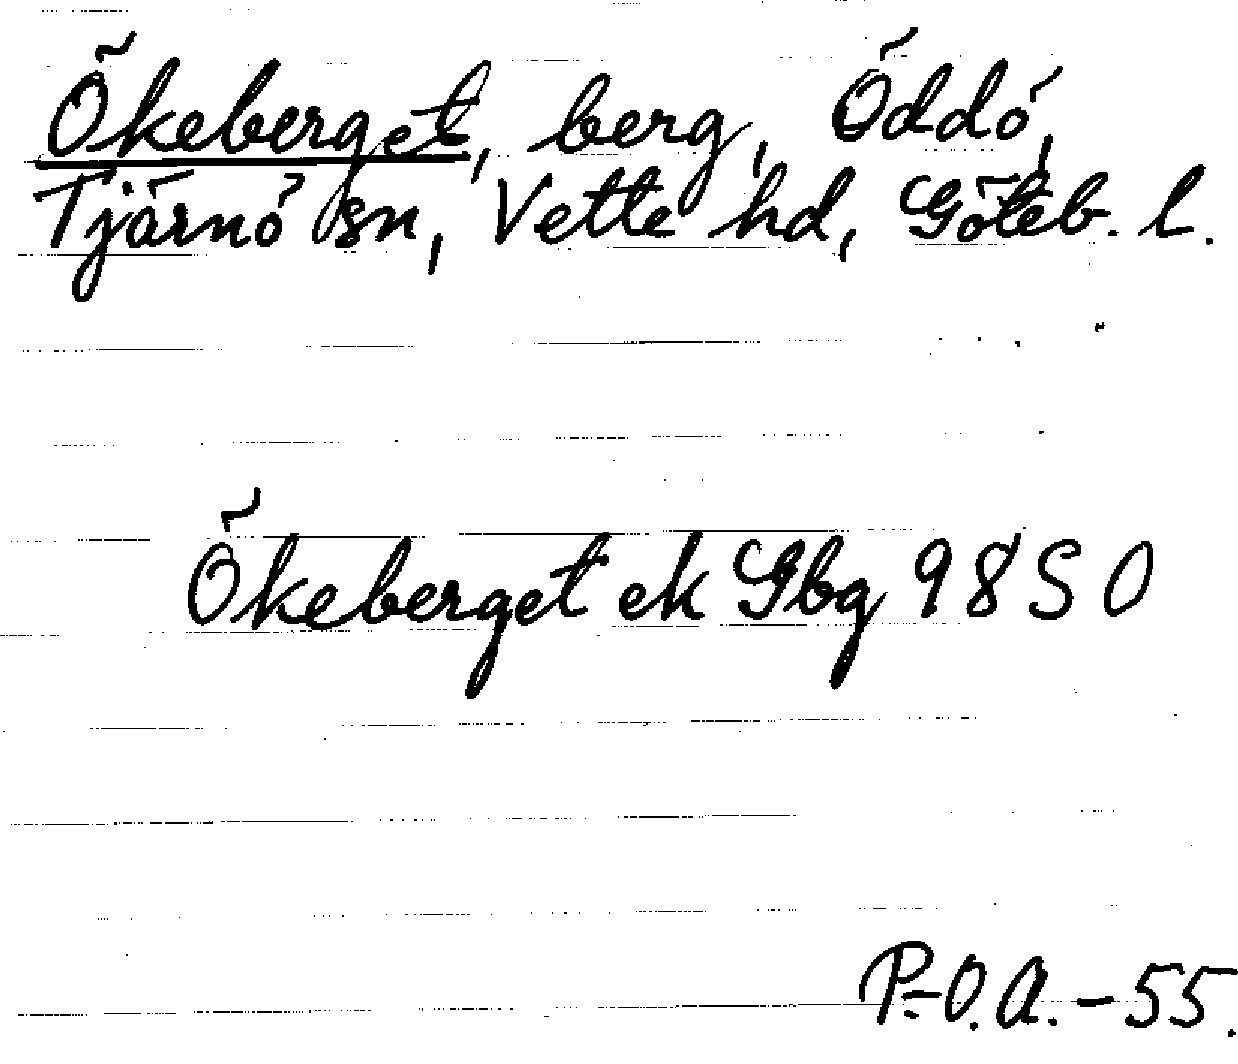 Ökeberget, berg, Öddö,
Tjärnö sn, Vette hd, Göteb. l.
Ökeberget ek Gbg 98 SO
P.-O.A.-55.